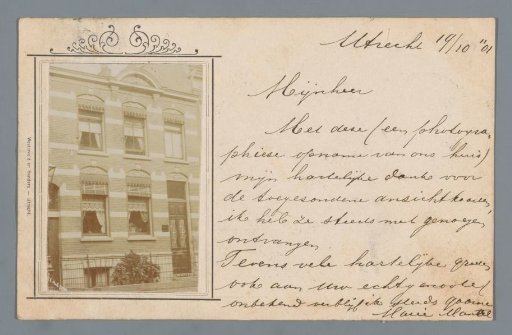 Utrecht 19/10 '01
Mijnheer
Met deze (een photogra-
phiese opname van ons huis)
mijn hartelijke dank voor
de toegezondene ansichtkaarten,
ik heb ze steeds met genoegen
ontvangen
Tevens vele hartelijke groeten
ook aan uw echtgenoote
onbekend verblijf ik steeds gaarne
Marie